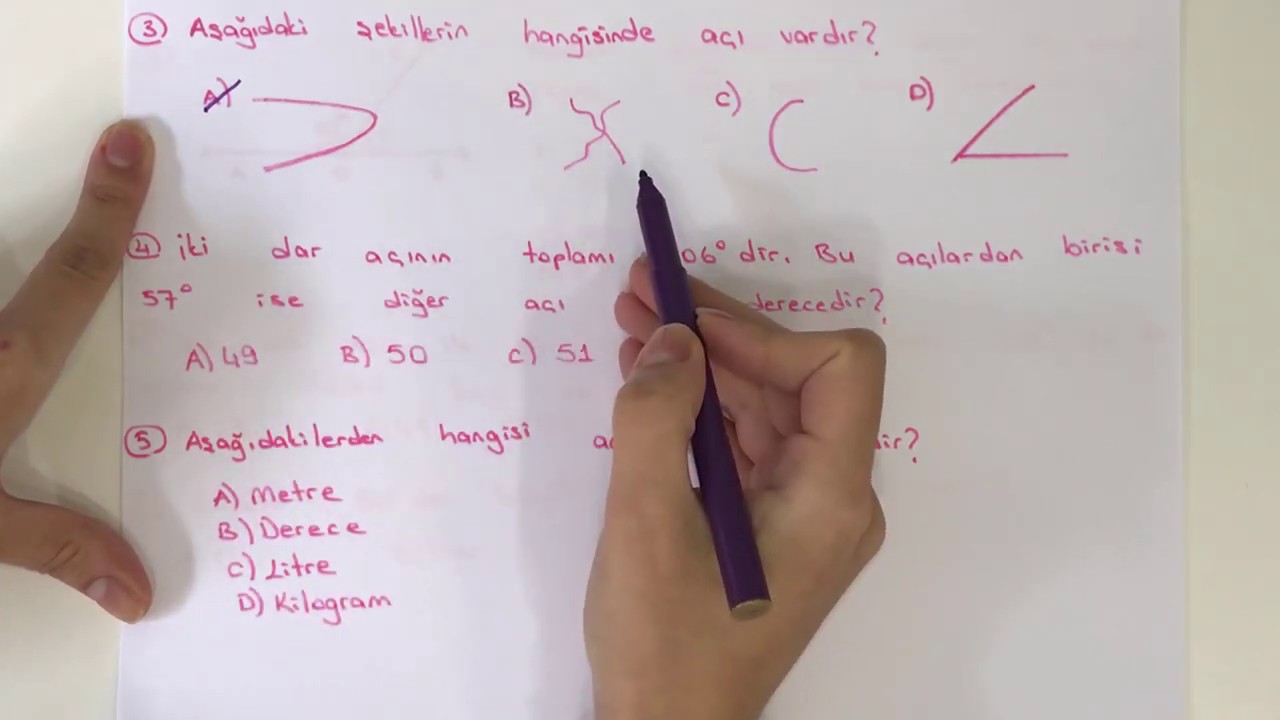 3 Aşağıdaki şekillerin hangisinde açı vardır?
A) B) C) D)
4 iki dar açının toplamı 06° dir. Bu açılardan birisi
57° ise diğer açı derecedir?
A) 49 B) 50 C) 51
5 Aşağıdakilerden hangisi
A) Metre
B) Derece
C) Litre
D) Kilogram